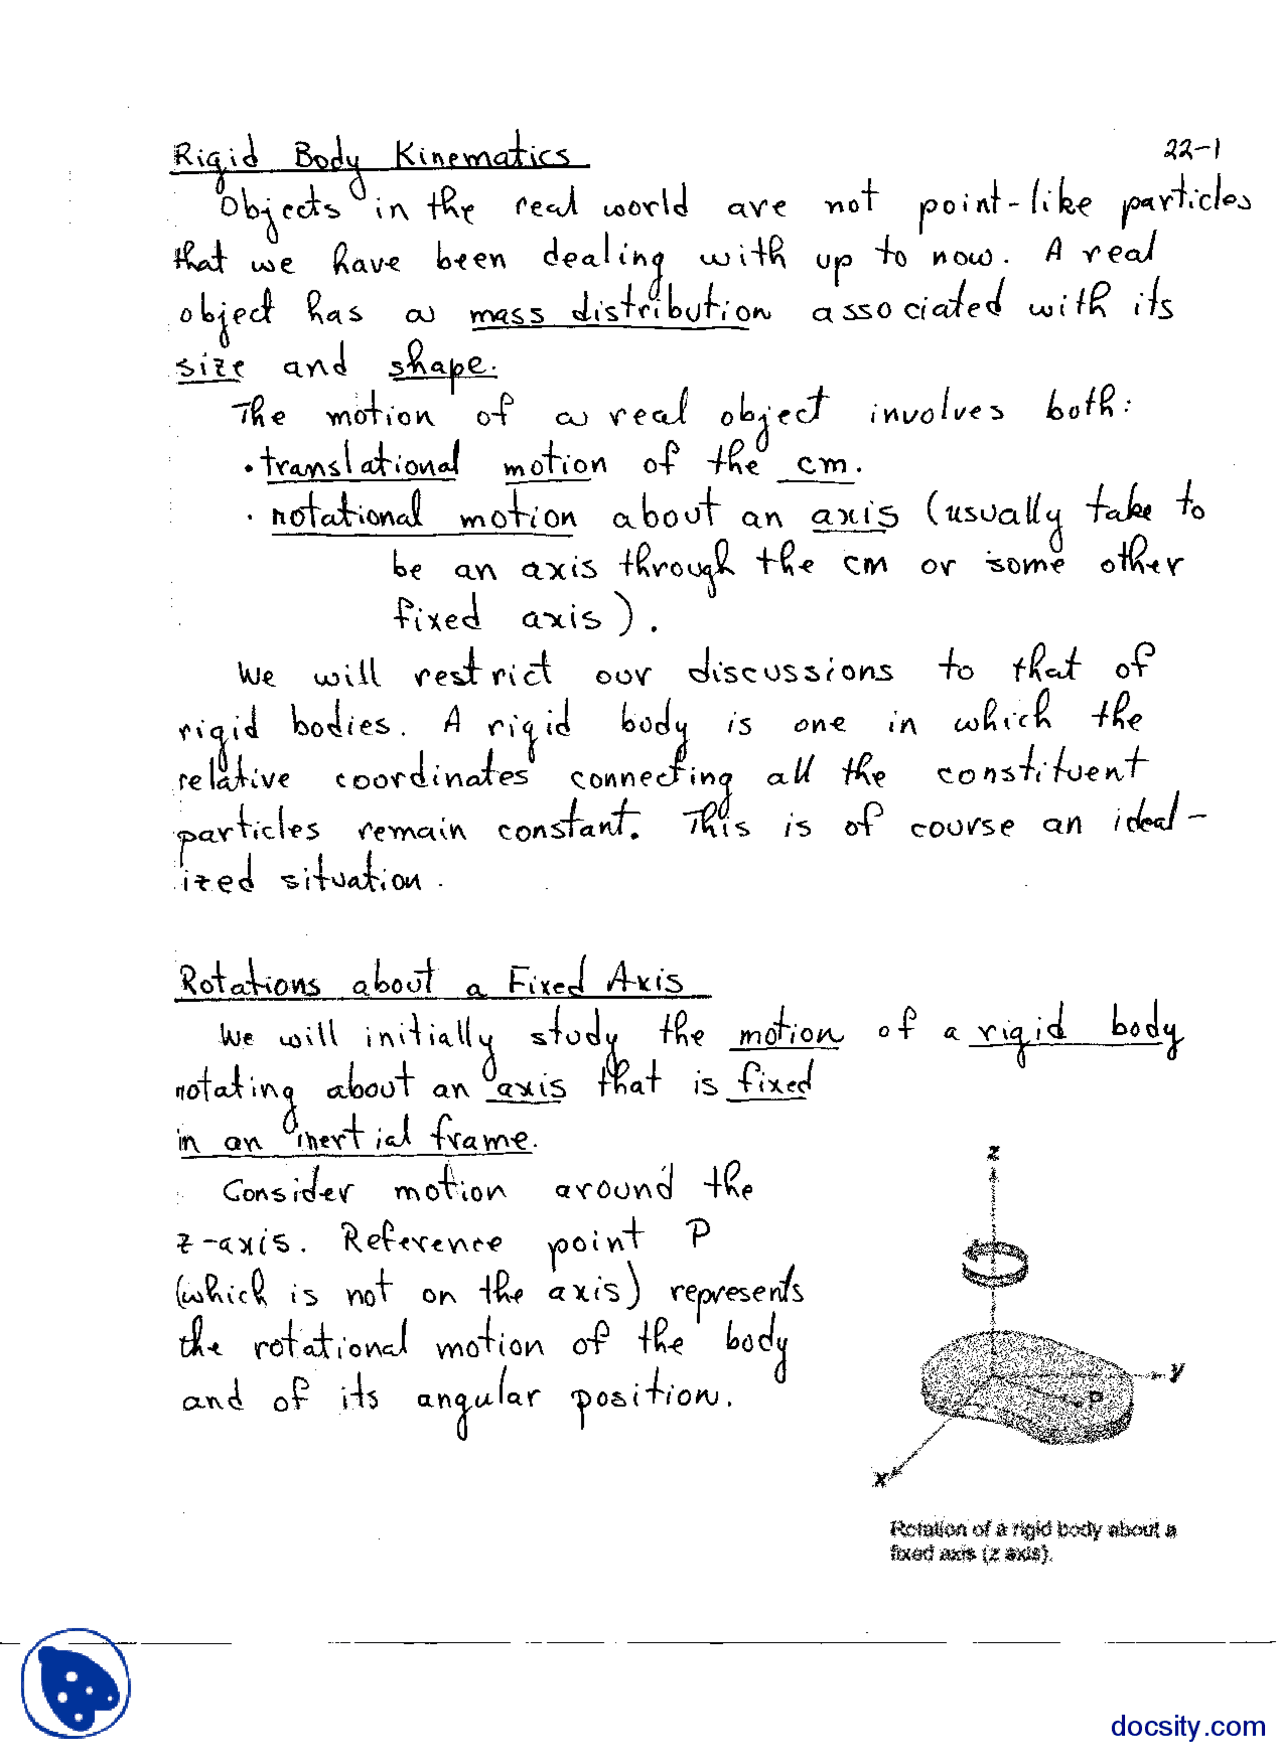 Rigid Body Kinematics
22-1
Objects in the real world are not point-like particles
that we have been dealing with up to now. A real
object has a mass distribution associated with its
size and shape.
The motion of a real object involves both:
• translational motion of the cm.
• rotational motion about an axis (usually take to
be an axis through the cm or some other
fixed axis).
We will restrict our discussions to that of
rigid bodies. A rigid body is one in which the
relative coordinates connecting all the constituent
particles remain constant. This is of course an ideal-
ized situation.
Rotations about a Fixed Axis
We will initially study the motion of a rigid body
rotating about an axis that is fixed
in an inertial frame.
Consider motion around the
z-axis. Reference point P
(which is not on the axis) represents
the rotational motion of the body
and of its angular position.
z
y
P
x
Rotation of a rigid body about a
fixed axis (z axis).
docsity.com